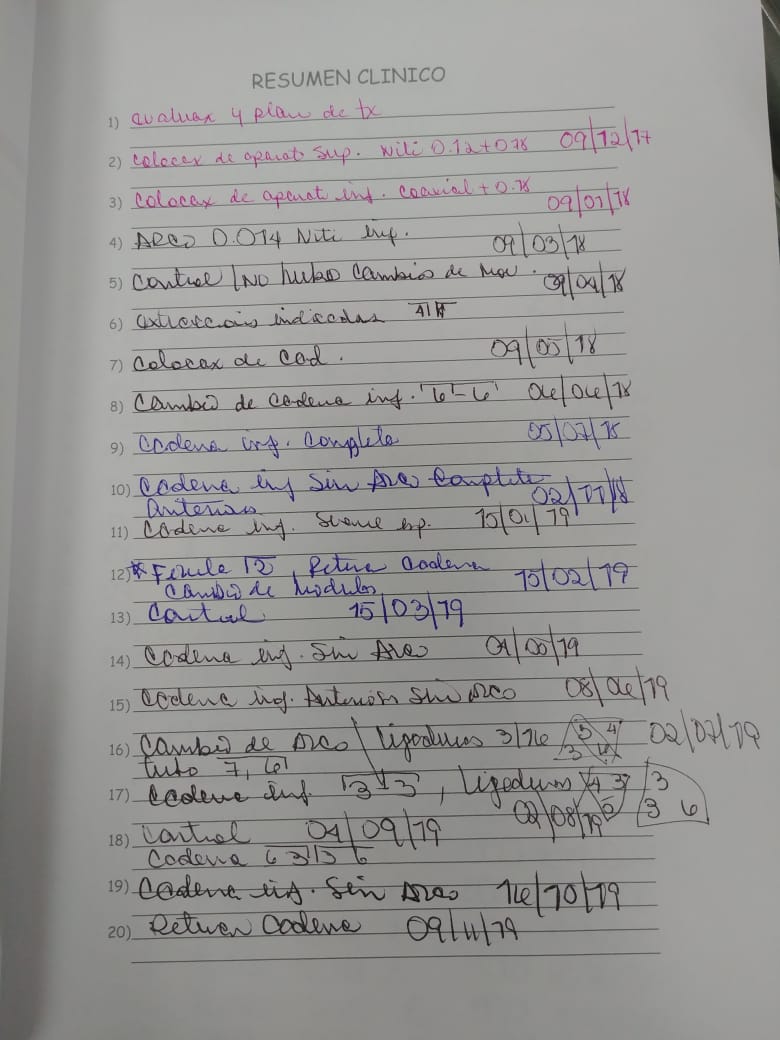 RESUMEN CLINICO
1) evaluax y plan de tx
2) colocax de aparat sup. Niti 0.12+018 09/12/17
3) colocax de aparat inf. coaxial + 0.18 09/01/18
4) Arco 0.014 Niti inf. 09/03/18
5) Control | No hubo cambio de 09/04/18
6) indicadas
7) Colocax de cad. 09/05/18
8) Cambio de cadena inf. 6-6 06/06/18
9) Cadena inf. Complete 05/07/18
10) Cadena inf Sin Arco Complete
Anterior 02/11/18
11) Cadena inf. 15/01/19
12) * Ferula 12, Retira cadena
Cambio de Modulos 15/02/19
13) Control 15/03/19
14) Cadena inf. Sin Arco
15) Cadena inf. Anterior Sin arco 08/06/19
16) Cambio de Arco / ligaduras 3/16 02/07/19
tubo 7, 6
17) Cadena inf. 3-3, ligaduras 4 3 / 3
02/08/19 3 6
18) Control 04/09/19
Cadena 6 3 | 3 6
19) Cadena inf. Sin Arco 16/10/19
20) Retirar Cadena 09/11/19